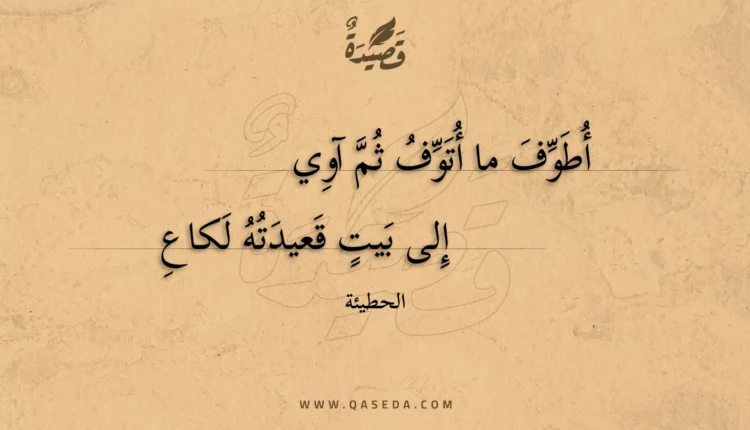 قَصِيْدَةٌ
أُطَوِّفَ ما أُتَوِّفُ ثُمَّ آوِي
إِلى بَيتٍ قَعيدَتُهُ لَكاعِ
الحطيئة
WWW.QASEDA.COM